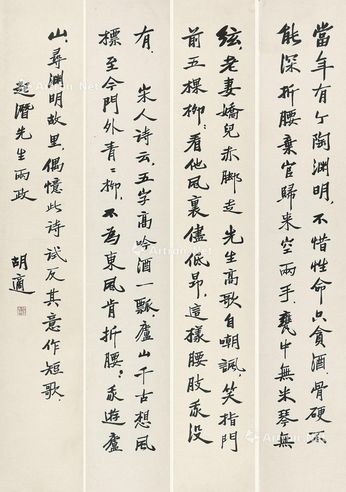 當年有个陶淵明，不惜性命只貪酒，骨硬不
能深折腰，棄官歸来空兩手，甕中無米琴無
絃，老妻嬌兒赤腳走，先生高歌自嘲諷，笑指門
前五棵柳：看他風裏儘低昂，這樣腰肢我沒
有。　宋人詩云，五字高吟酒一瓢，廬山千古想風
標，至今門外青青柳，不為東風肯折腰。我遊廬
山，尋淵明故里，偶憶此詩，試反其意作短歌，
超潛先生兩政
胡適